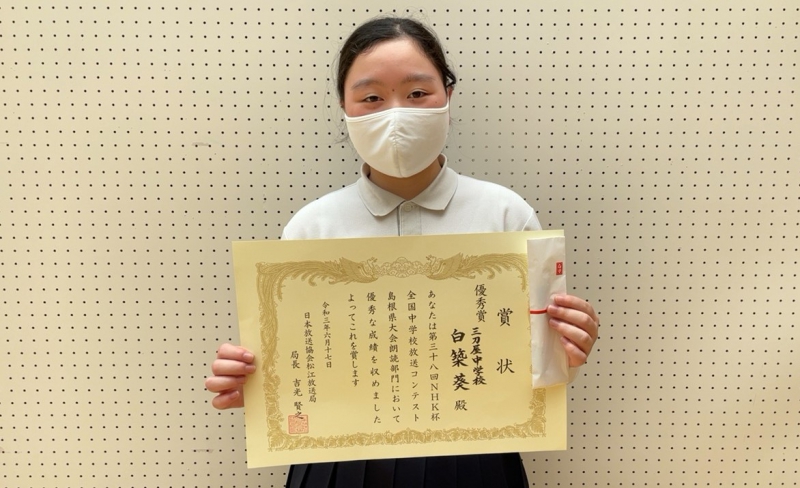 賞状
優秀賞
三刀屋中学校
白築葵殿
あなたは第三十八回NHK杯
全国中学校放送コンテスト
島根県大会朗読部門において
優秀な成績を収めました
よってこれを賞します
令和三年六月十七日
日本放送協会松江放送局
局長 吉光賢之